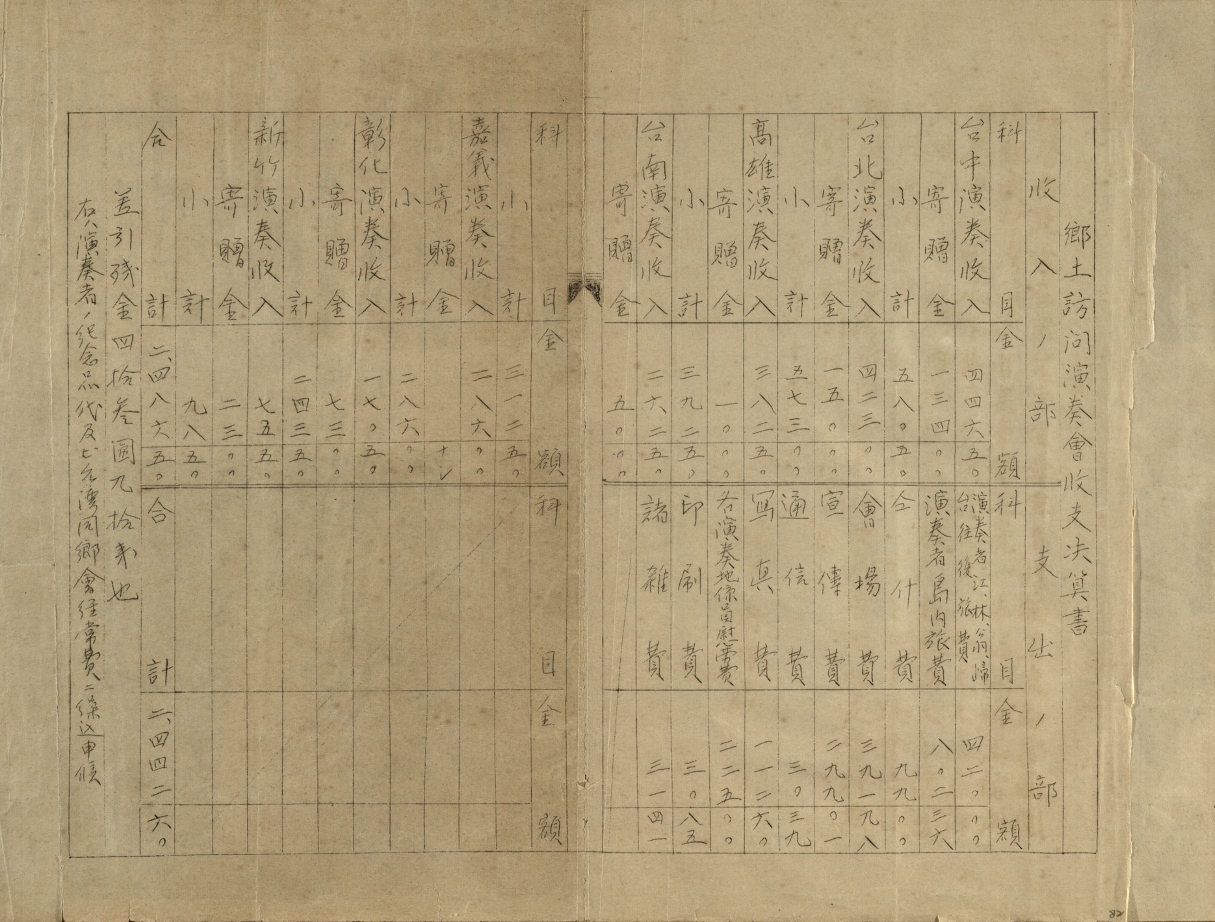 鄉土訪問演奏會收支決算書
收入ノ部 支出ノ部
科目 金額 科目 金額
台中演奏收入 四四六五〇 演奏者江、林、翁、歸台往復旅費 四二〇〇〇
寄贈金 一三四〇〇 演奏者島內旅費 八〇二三六
小計 五八〇五〇 仝什費 九九〇〇
台北演奏收入 四二三〇〇 會場費 三九一九八
寄贈金 一五〇〇〇 宣傳費 二九九〇一
小計 五七三〇〇 通信費 三〇三九
高雄演奏收入 三八二五〇 写真費 一一二六〇
寄贈金 一〇〇〇 各演奏地係員慰勞費 二二五〇〇
小計 三九二五〇 印刷費 三〇八五
台南演奏收入 二六二五〇 諸雜費 三一四一
寄贈金 五〇〇〇
科目 金額 科目 金額
小計 三一二五〇
嘉義演奏收入 二八六〇〇
寄贈金
小計 二八六〇〇
彰化演奏收入 一七〇五〇
寄贈金 七三〇〇
小計 二四三五〇
新竹演奏收入 七五五〇
寄贈金 二三〇〇
小計 九八五〇
合計 二、四八六五〇 合計 二、四四二六〇
差引殘金四拾参圓九拾也
右ハ演奏者ノ紀念品代及ビ湾同鄉會経常費ニ繰込申候
82